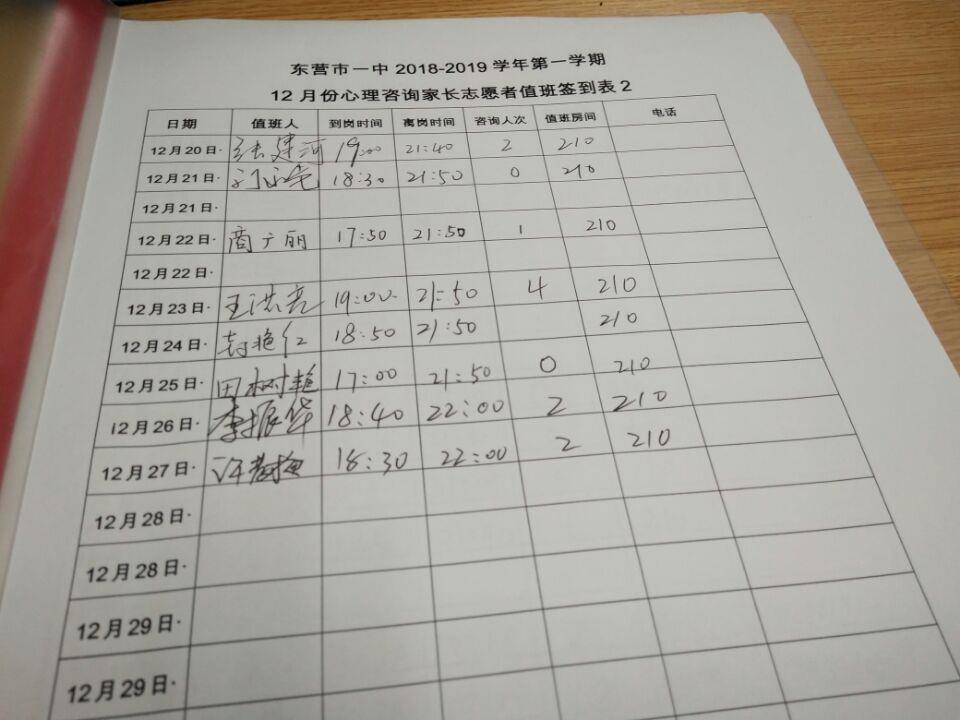 东营市一中 2018-2019 学年第一学期
12 月份心理咨询家长志愿者值班签到表 2
日期 值班人 到岗时间 离岗时间 咨询人次 值班房间 电话
12月20日· 张建河 19:00 21:40 2 210
12月21日· 18:30 21:50 0 210
12月21日·
12月22日· 商广丽 17:50 21:50 1 210
12月22日·
12月23日· 王洪亮 19:00 21:50 4 210
12月24日· 封艳红 18:50 21:50 210
12月25日· 田树艳 17:00 21:50 0 210
12月26日· 李振华 18:40 22:00 2 210
12月27日· 18:30 22:00 2 210
12月28日·
12月28日·
12月29日·
12月29日·